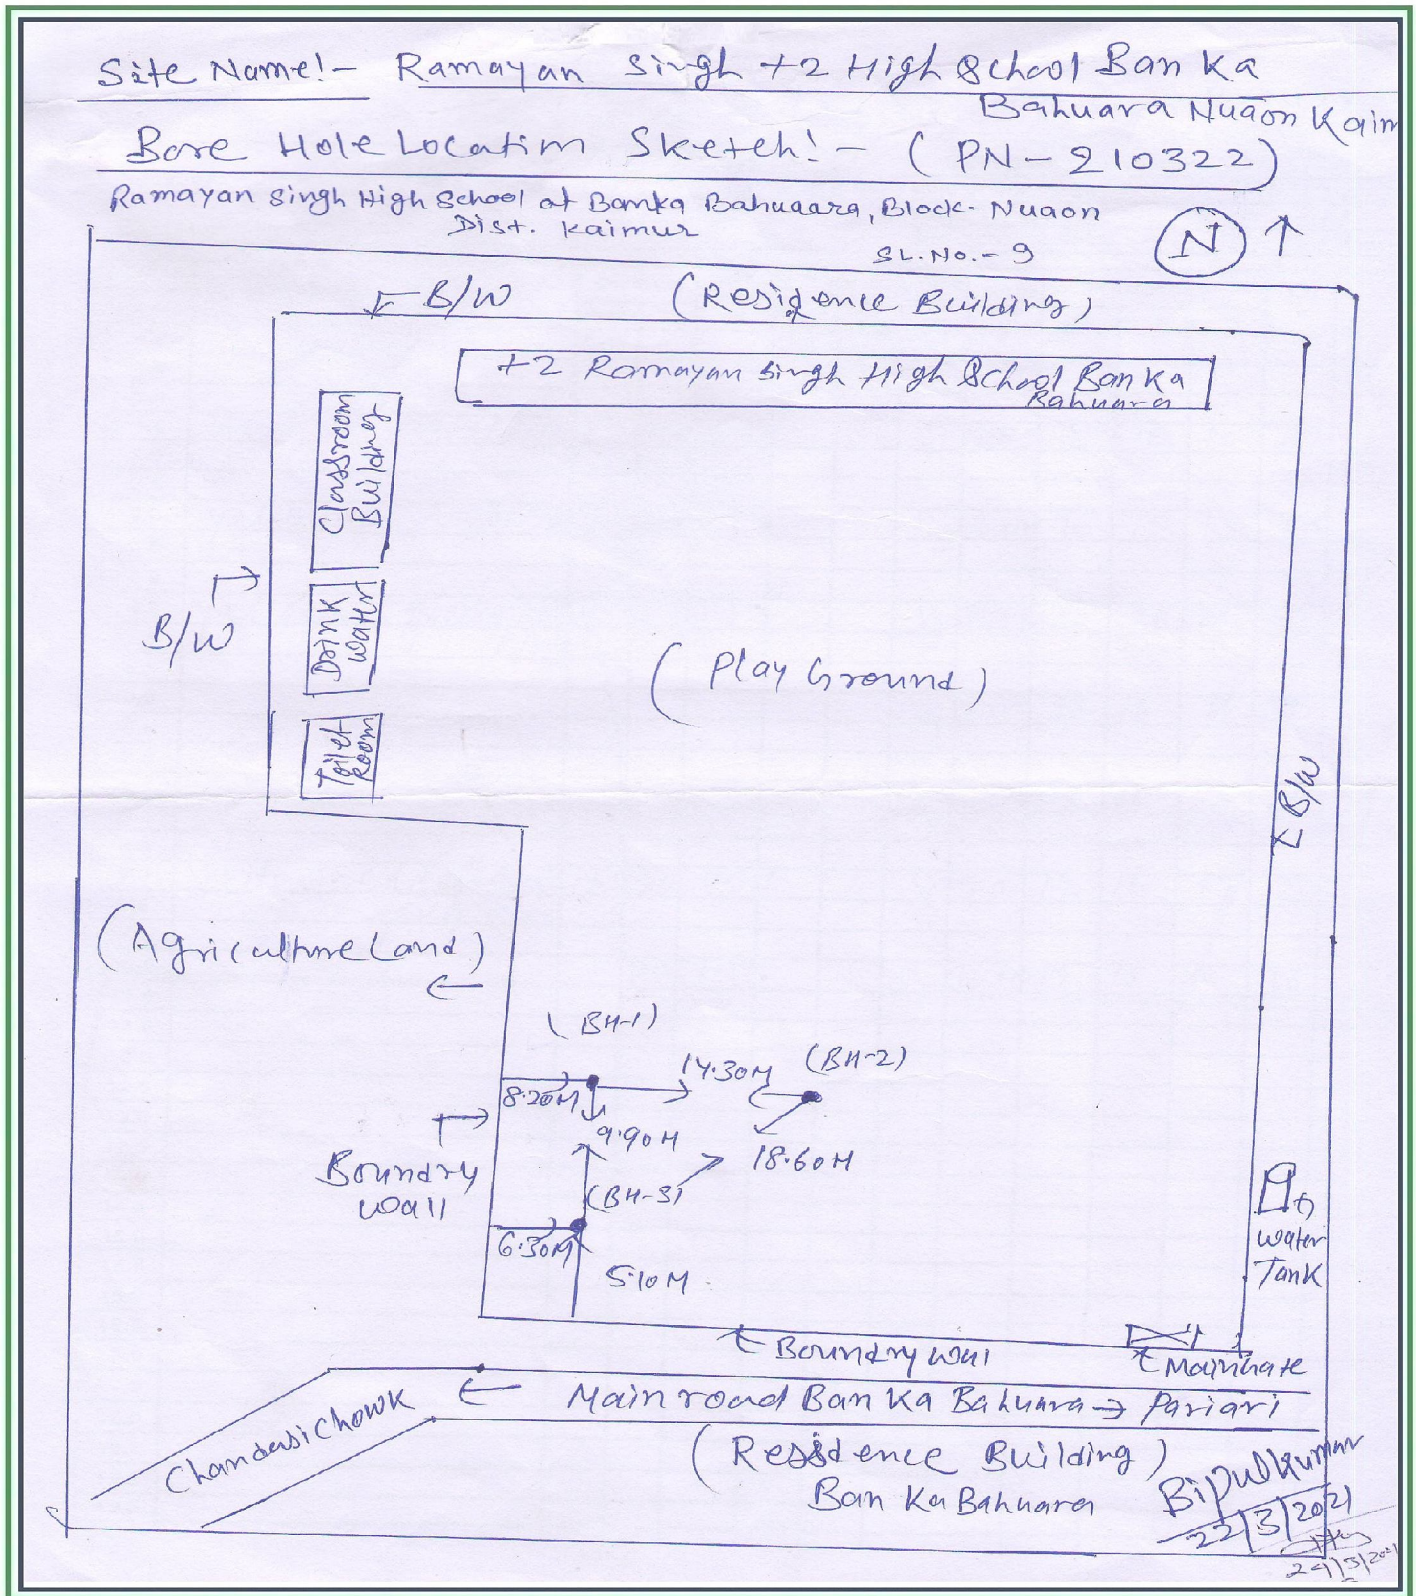 Site Name!- Ramayan Singh +2 High School Banka
Bahuara Nuaon Kaim
Bore Hole Location Sketch!- (PN-210322)
Ramayan Singh High School at Banka Bahuaara, Block- Nuaon
Dist. Kaimur
SL.No.- 9
N
B/W
(Residence Building)
+2 Ramayan Singh High School Banka
Bahuara
Classroom
Building
Drink
Water
Toilet
Room
B/W
(Play Ground)
B/W
(Agriculture Land)
(BH-1)
14.30M
(BH-2)
8.20M
9.90M
18.60M
Boundry
wall
(BH-3)
6.30M
5.10M
Water
Tank
Boundry Wal
MainGate
Main road Banka Bahuara → Pariari
Chandasi Chowk
(Residence Building)
Banka Bahuara
Bipul Kumar
22/3/2021